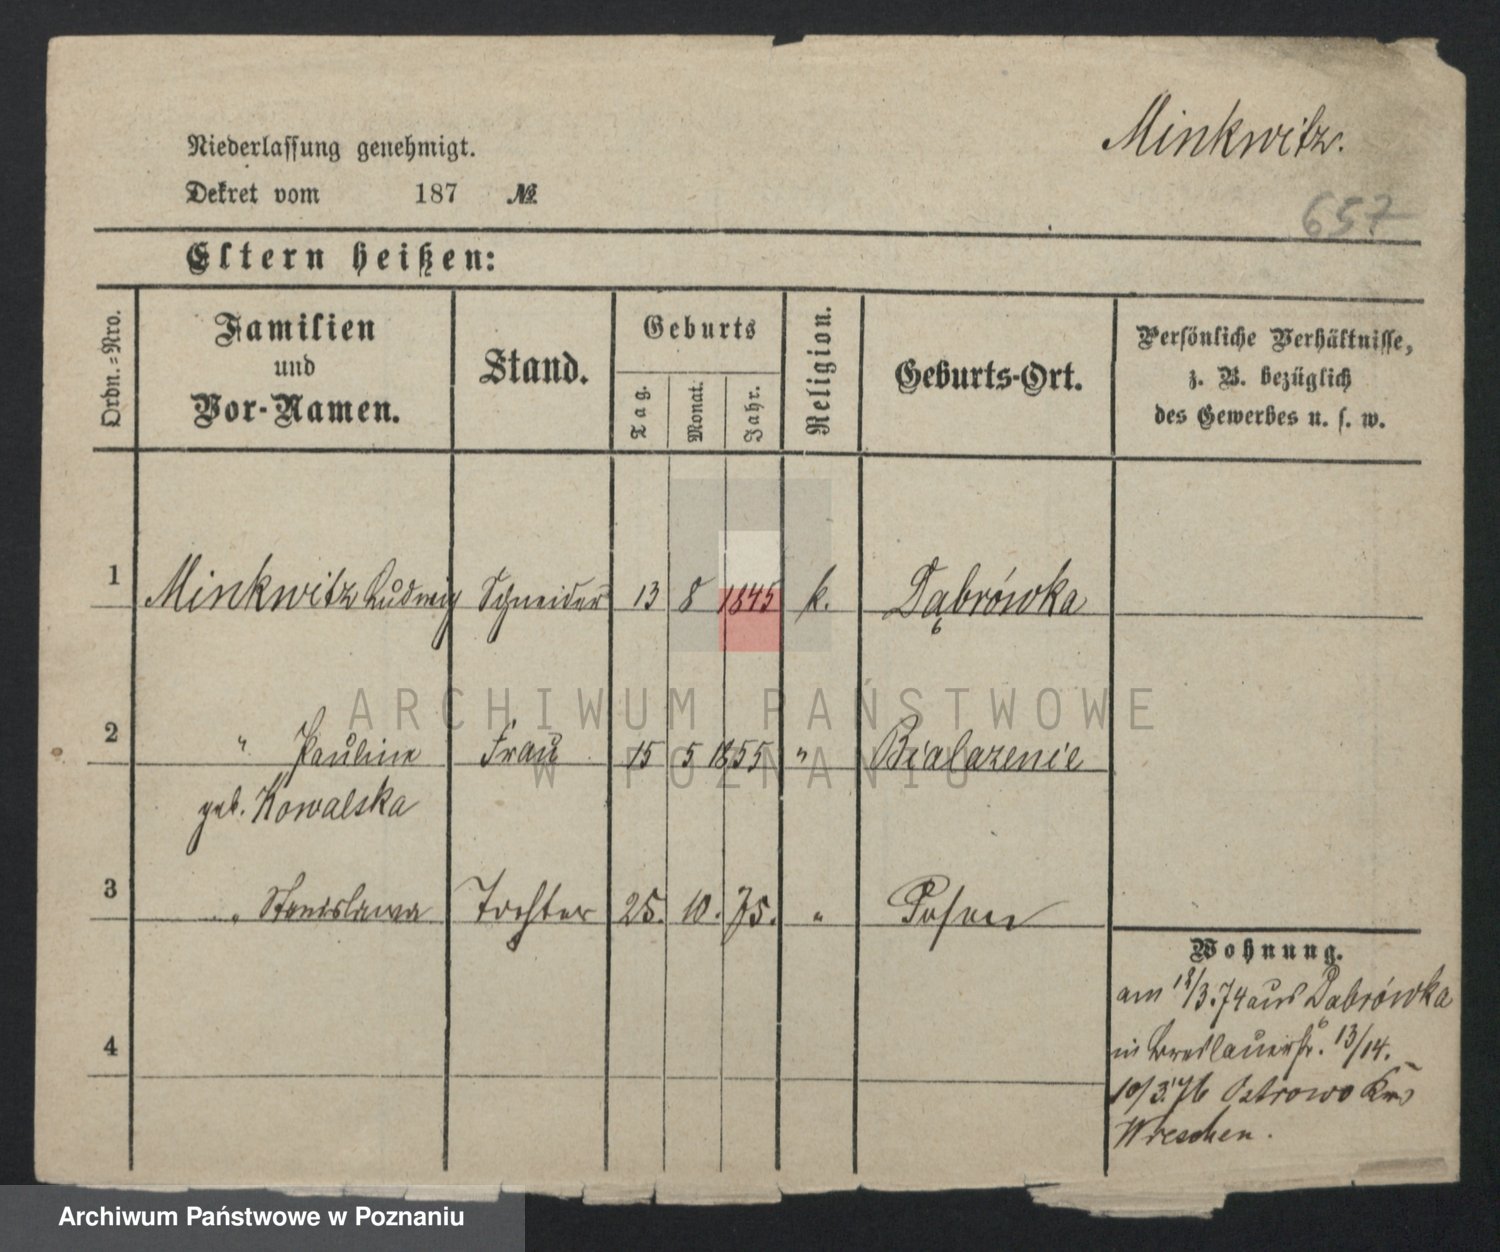 Minkwitz.
657
Niederlassung genehmigt.
Dekret vom 187 №
Eltern heißen:
Ordn.=Nro.
Familien
und
Vor-Namen.
Stand.
Geburts
Tag.
Monat.
Jahr.
Religion.
Geburts-Ort.
Persönliche Verhältnisse,
z. B. bezüglich
des Gewerbes u. s. w.
1 Minkwitz Ludwig Schneider 13 8 1845 k. Dąbrówka
2 " Pauline Frau 15 5 1855 " Bialazenie
geb. Kowalska
3 " Stanislawa Tochter 25. 10. 75. " Posen
4
Wohnung.
am 18/3.74 aus Dąbrówka
in Breslauerstr. 13/14.
10/3.76 Ostrowo Krs
Wreschen.
ARCHIWUM PAŃSTWOWE
W POZNANIU
Archiwum Państwowe w Poznaniu